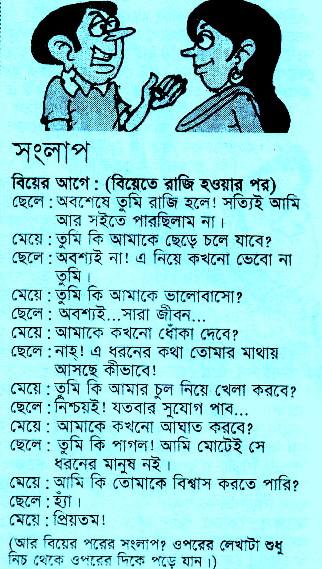 সংলাপ
বিয়ের আগে : (বিয়েতে রাজি হওয়ার পর)
ছেলে : অবশেষে তুমি রাজি হলে! সত্যিই আমি
আর সইতে পারছিলাম না।
মেয়ে : তুমি কি আমাকে ছেড়ে চলে যাবে?
ছেলে : অবশ্যই না! এ নিয়ে কখনো ভেবো না
তুমি।
মেয়ে : তুমি কি আমাকে ভালোবাসো?
ছেলে : অবশ্যই...সারা জীবন...
মেয়ে : আমাকে কখনো ধোঁকা দেবে?
ছেলে : নাহ্! এ ধরনের কথা তোমার মাথায়
আসছে কীভাবে!
মেয়ে : তুমি কি আমার চুল নিয়ে খেলা করবে?
ছেলে : নিশ্চয়ই! যতবার সুযোগ পাব...
মেয়ে : আমাকে কখনো আঘাত করবে?
ছেলে : তুমি কি পাগল! আমি মোটেই সে
ধরনের মানুষ নই।
মেয়ে : আমি কি তোমাকে বিশ্বাস করতে পারি?
ছেলে : হ্যাঁ।
মেয়ে : প্রিয়তম!
(আর বিয়ের পরের সংলাপ? ওপরের লেখাটা শুধু
নিচ থেকে ওপরের দিকে পড়ে যান।)